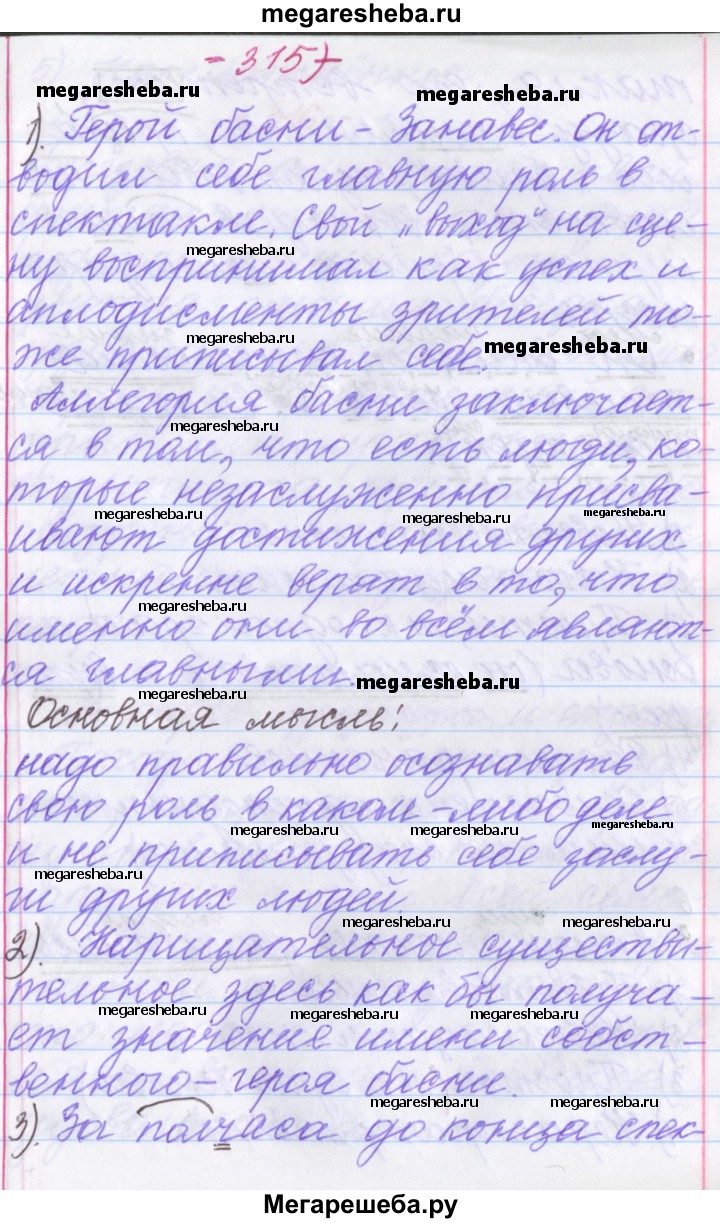 megaresheba.ru
- 315 -
megaresheba.ru
megaresheba.ru
1). Герой басни - Занавес. Он от-
водил себе главную роль в
спектакле. Свой „выход" на сце-
megaresheba.ru
ну воспринимал как успех и
аплодисменты зрителей то-
megaresheba.ru
megaresheba.ru
же приписывал себе.
Аллегория басни заключает-
megaresheba.ru
ся в том, что есть люди, ко-
торые незаслуженно присва-
megaresheba.ru
megaresheba.ru
megaresheba.ru
ивают достижения других
и искренне верят в то, что
megaresheba.ru
именно они во всём являют-
ся главными.
megaresheba.ru
megaresheba.ru
Основная мысль:
надо правильно осознавать
свою роль в каком-либо деле
megaresheba.ru
megaresheba.ru
megaresheba.ru
и не приписывать себе заслу-
megaresheba.ru
ги других людей.
megaresheba.ru
megaresheba.ru
2). Нарицательное существи-
тельное здесь как бы получа-
megaresheba.ru
megaresheba.ru
megaresheba.ru
ет значение имени собст-
венного - героя басни.
megaresheba.ru
megaresheba.ru
3). За полчаса до конца спек-
Мегарешеба.ру